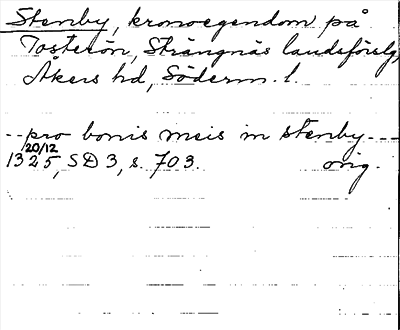 Stenby, kronoegendom på
Tosterön, Strängnäs landsförslg,
Åkers hd, Söderm. l.
-- pro bonis meis in stenby ---
13 20/12 25, SD 3, s. 703. orig.